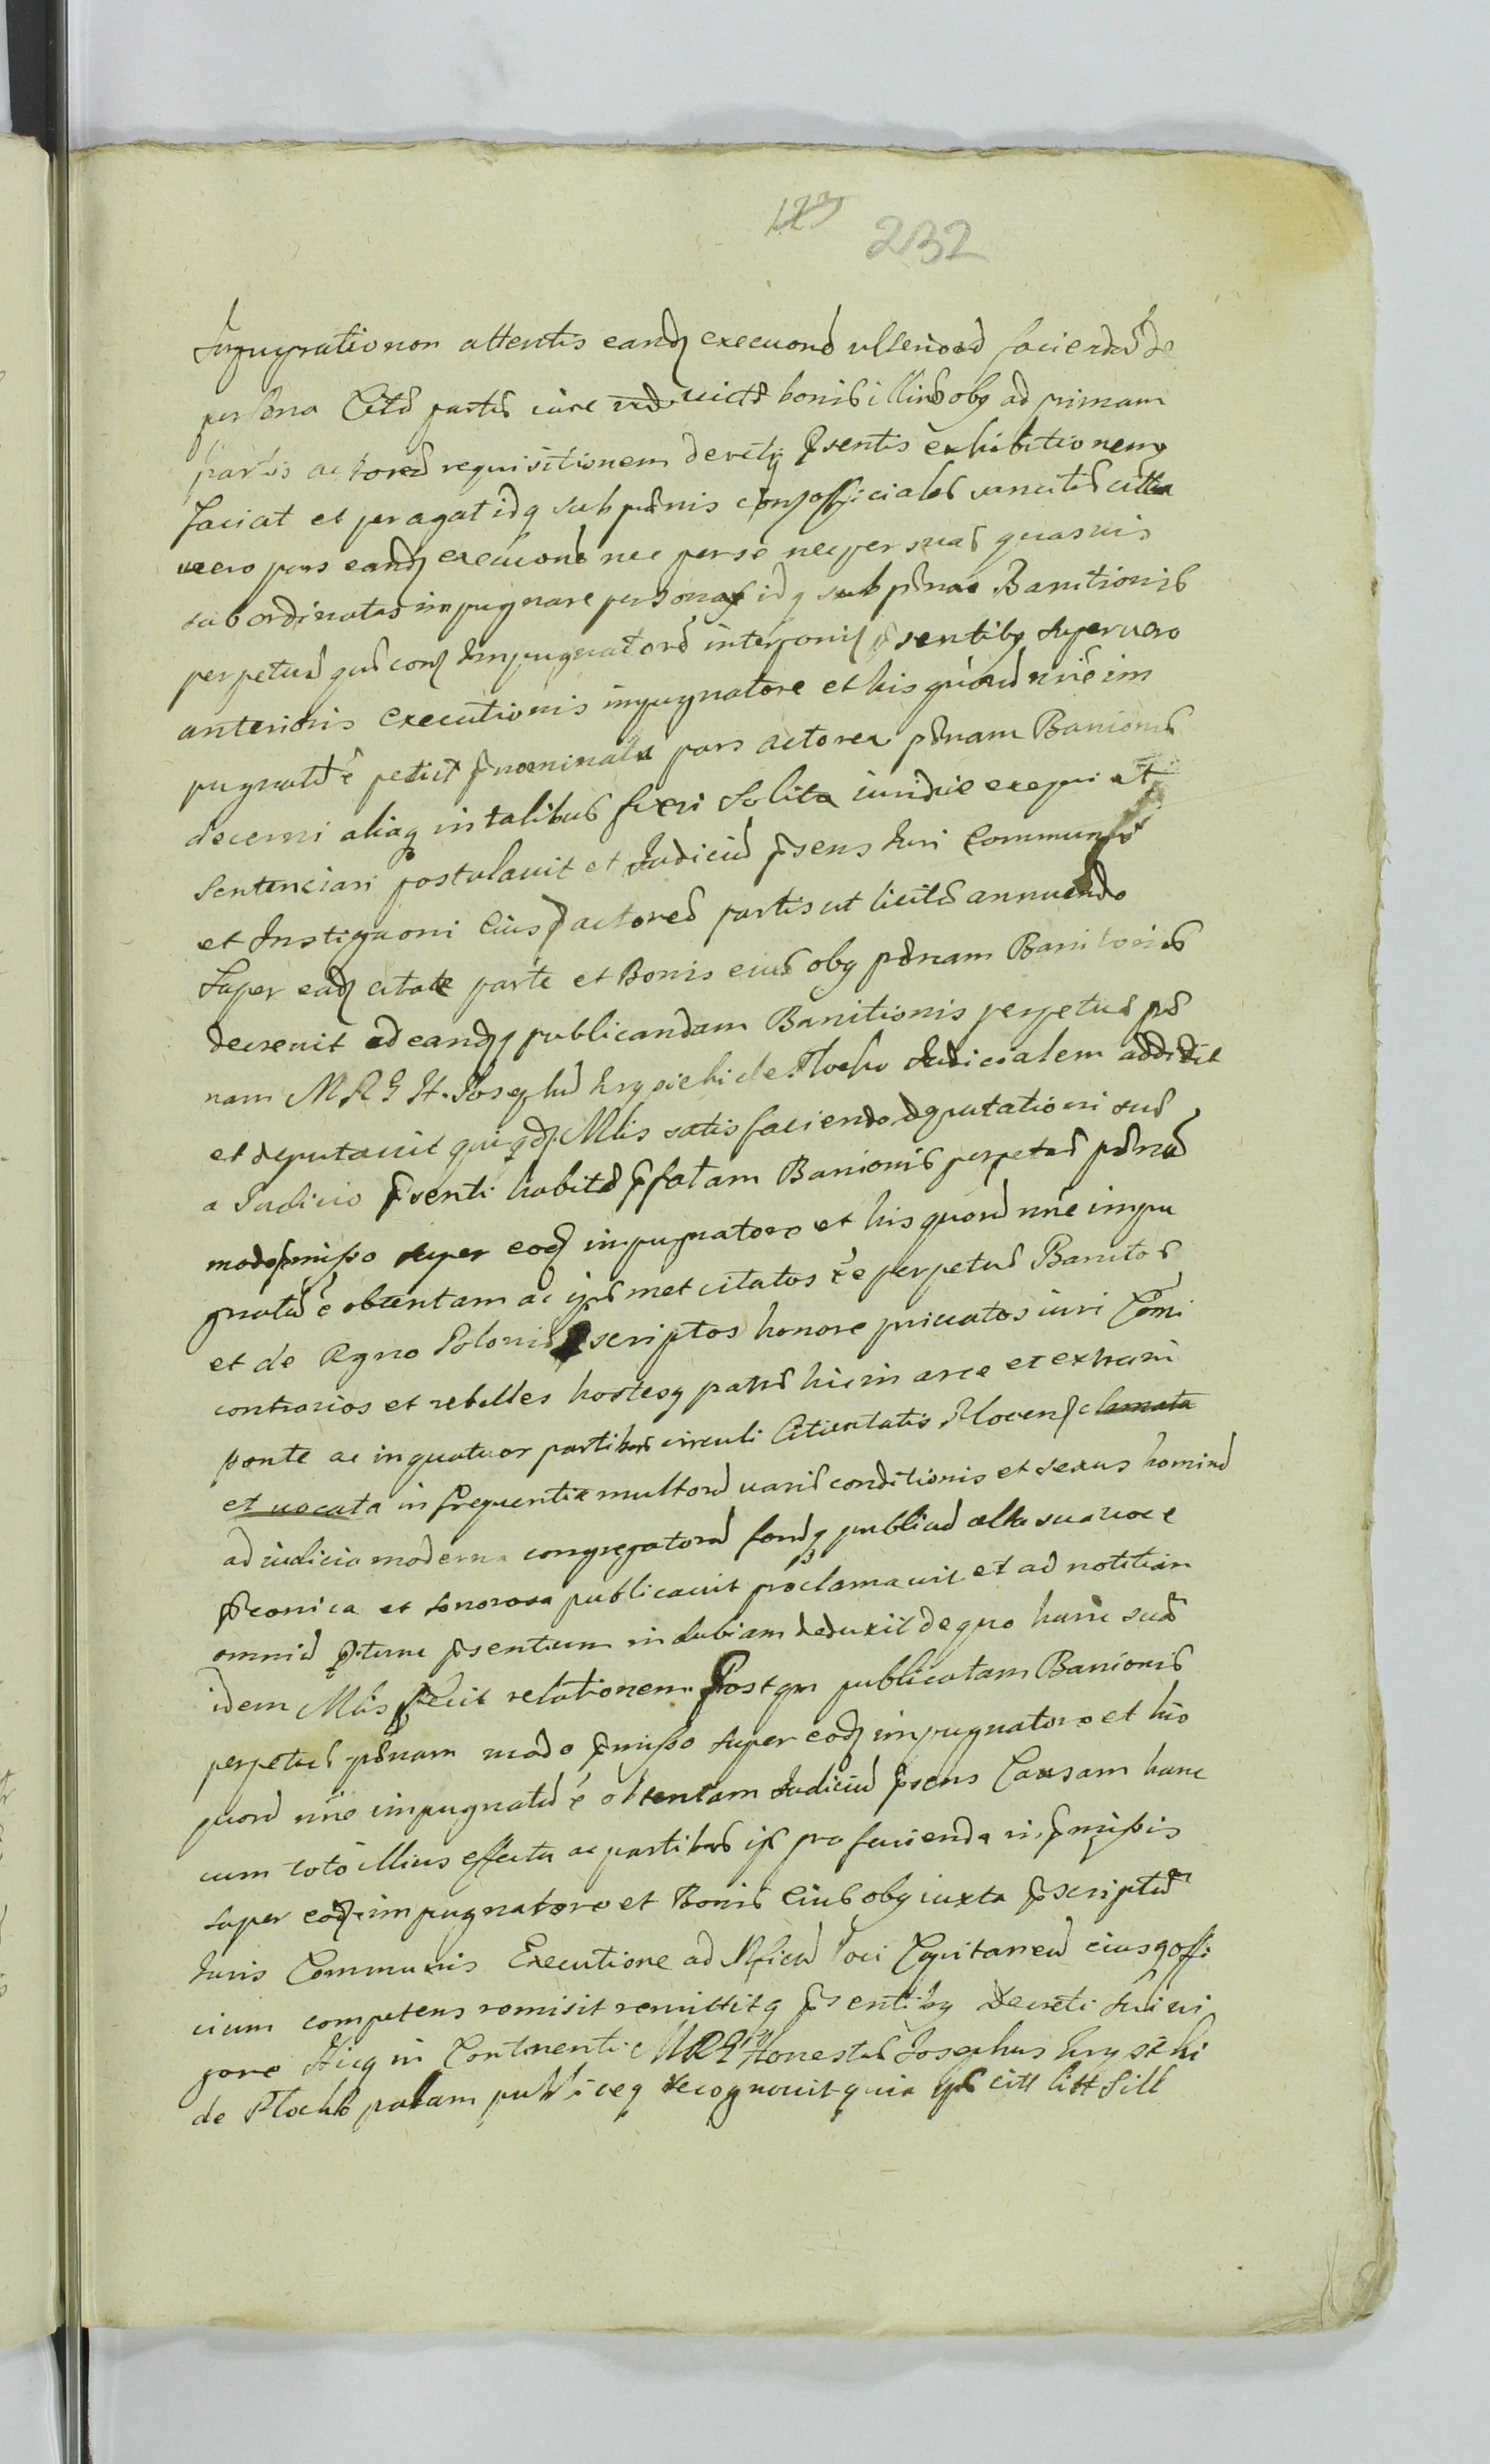 123 232
Impugnationon attentis eandẽ execuone ulteriore facienda de
persona Citæ partis iure victæ bonis illius obq ad primam
partis actoreæ requisitionem decretiq pñsentis exhibitionemq
faciat et peragat idq sub pænis contra officiales sancitis citta
vero pars eandẽ execuone nec per se nec per suas quasvis
subordinatas impugnare personas idq sub pæna Banitionis
perpetuæ quæ conẽ Impugnatorẽ interponiẽ pñsentibq Super vero
anterioris executionis inpugnatore et his quorũ nñe im
pugnatũ ẽ petiit pñnominata pars actorea pænam Banionis
decerni aliaq in talibus fieri solita iuridice exequi et
Sentenciari postulavit et Judiciũ pñsens Juri Communi
et Instigaoni Eiusẽ actoreæ partis ut licitæ annuendo
Super eadẽ citata parte et Bonis eius obq pænam Banitionis
decrevit ad eandẽq publicandam Banitionis perpetuæ pæ
nam M R G H. Josephũ Krysicki de Plocko Judicialem addidit
et deputavit qui qdẽ Mlis satis faciendo deputationi suæ
a Judicio pñsenti habitæ pñfatam Banionis perpetuæ pænã
modo pñmisso super eodẽ inpugnatore et his quorũ nñe impu
gnatũ ẽ obtentam ac ipsos met citatos ẽe perpetuæ Banitos
et de Regno Poloniæ scriptos honore privatos iuri Cõmi
contrarios et rebelles hostesq patriæ hic in arce et extra in
ponte ac in quatuor partibus circuli Civitatis Plocenẽ clamata
et vocata in frequentia multorũ variæ conditionis et sexus hominũ
ad iudicia moderna congregatorũ forũq publicũ alta sua voce
pñconica et sonorosa publicavit proclamavit et ad notitiam
omniũ p. tunc pñsentium indubiam deduxit de quo hanc suã
idem Mlis fecit relationem Post qm publicatam Banionis
perpetuæ pænam modo pñmisso super eodẽ impugnatore et his
quorũ nñe impugnatũ ẽ obtentam Judiciũ pñsens Causam hanc
cum toto illius effectu ac partibus ipsis pro facienda in pñmissis
super eodẽ impugnatore et Bonis Eius obq iuxta pñscriptũ
Juris Communis Executione ad Offciũ loci Capitaneũ eiusq offi
cium competens remisit remittitq pñsentibq Decreti sui vi
gore Hicq in Continenti MRG Honestus Josephus Krysicki
de Plocko palam publiceq recognovit quia ipse citt litt Sill